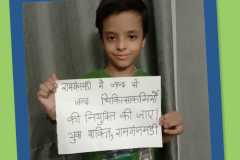 रामगंजमंडी में जल्द से
जल्द चिकित्साकर्मियों
की नियुक्ति की जाए।
युवा शक्ति, रामगंजमंडी